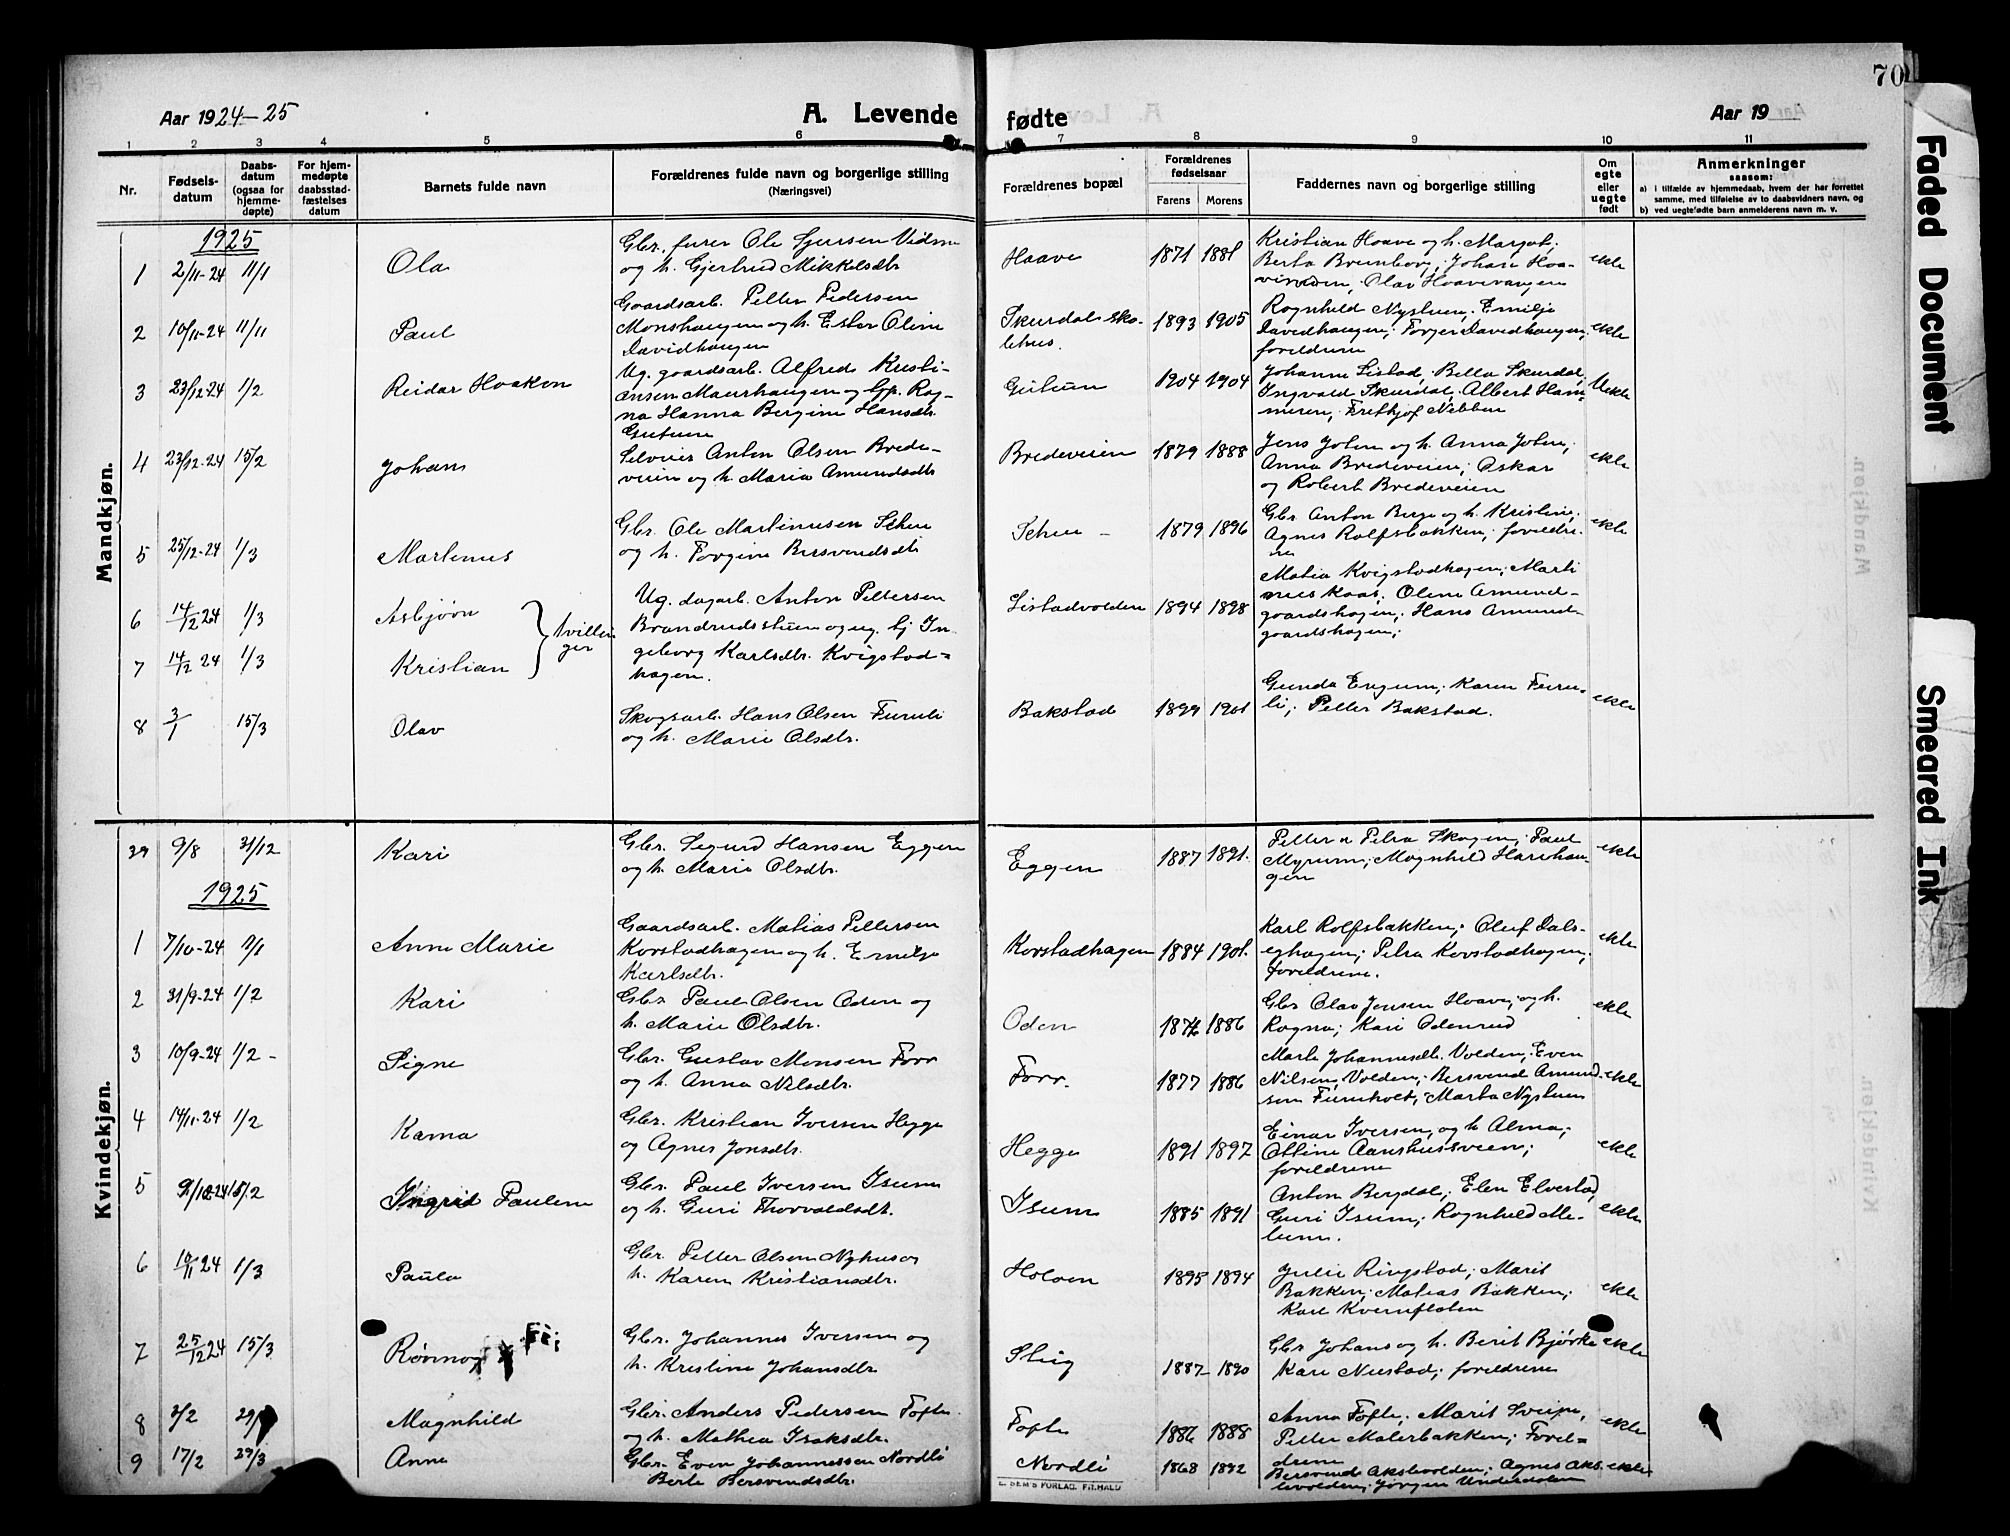 70
Aar 1924-25
A. Levende
fødte
Aar 19
1 2 3 4 5 6 7 8 9 10 11
Nr.
Fødsels-
datum
Daabs-
datum
(ogsaa for
hjemme-
døpte)
For hjem-
medøpte
daabsstad-
fæstelses
datum
Barnets fulde navn
Forældrenes fulde navn og borgerlige stilling
(Næringsvei)
Forældrenes bopæl
Forældrenes
fødselsaar
Farens Morens
Faddernes navn og borgerlige stilling
Om
egte
eller
uegte
født
Anmerkninger
saasom:
a) i tilfælde av hjemmedaab, hvem der har forrettet
samme, med tilføielse av to daabsvidners navn, og
b) ved uegtefødte barn anmelderens navn m. v.
Mandkjøn.
1925
1 2/11-24 11/1 Ola
Gbr. furer Ole Sjursen Vidme
og h. Gjertrud Mikkelsdtr
Haave 1871 1881
Kristian Haave og h. Margot;
Berta Brunborg; Johan Haa-
vivolden; Olav Haavevangen
ekte
2 10/11-24 11/11 Paul
Gaardsarb. Petter Pedersen
Monshaugen og h. Ester Oline
Davidhaugen
Skurdal sko-
lehus. 1893 1905
Ragnhild Nystuen; Emilie
Davidhaugen; Torger Davidhaugen;
foreldrene
ekte
3 23/12-24 1/2 Reidar Haakon
Ug. gaardsarb. Alfred Kristi-
ansen Maurhaugen og Gp. Rag-
na Hanna Bergine Hansdtr.
Gutuen
Gutuen 1904 1904
Johanne Listad; Bella Skurdal,
Ingvald Skurdal; Albert Ham-
meren; Fritjof Nebben
Uekte
4 23/12-24 15/2 Johans
Selveier Anton Olsen Brede-
veien og h. Maria Amundsdtr
Bredeveien 1879 1888
Jens Jolen og h. Anna Jolen;
Anna Bredeveien; Oskar
og Robert Bredeveien
ekte
5 25/12-24 1/3 Martinus
Gbr. Ole Martinusen Schue
og h. Torgine Bersvendsdtr
Schue - 1879 1896
Gbr Anton Berge og h. Kristine;
Agnes Rolfsbakken; foreldre-
ne
ekte
6 14/2 24 1/3 Asbjørn
7 14/2 24 1/3 Kristian
Tvillin
ger
Ug. dagarb. Anton Pettersen
Brandrudsstuen og ug. tj In-
geborg Karlsdtr. Kvigstad-
hagen.
Listadvolden 1894 1898
Matia Kvigstadhagen; Marti
nus Kaas; Oline Amund-
gaardshagen; Hans Amund-
gaardshagen;
8 3/1 15/3 Olav
Skogsarb. Hans Olsen Furuli
og h. Marie Olsdtr.
Bakstad 1899 1901
Gunda Engum; Karen Furu-
li; Petter Bakstad.
ekte
Kvindekjøn.
29 9/8 31/12 Kari
Gbr. Sigurd Hansen Eggen
og h. Marie Olsdtr.
Eggen 1887 1891.
Petter o Petra Skogen; Paul
Myrum; Magnhild Harehau-
gen
ekte
1925
1 7/10-24 1/1 Anne Marie
Gaardsarb. Matias Pettersen
Korstadhagen og h. Emilje
Karlsdtr.
Korstadhagen 1884 1901.
Karl Rolfsbakken; Oluf Dals-
eghagen; Petra Korstadhagen;
foreldrene.
ekte
2 31/9-24 1/2 Kari
Gbr. Paul Olsen Oden og
h. Marie Olsdtr.
Oden 1876 1886
Gbr Olav Jensen Haave; og h.
Ragna; Kari Odenrud
ekte
3 10/9-24 1/2 - Signe
Gbr. Gustav Monsen Forr
og h. Anna Nilsdtr.
Forr. 1877 1886
Marte Johannesdtr. Volden; Even
Nilsen Volden; Bersvend Amund-
sen Furuholt; Marta Nystuen
ekte
4 14/11-24 1/2 Kama
Gbr. Kristian Iversen Hegge
og Agnes Jonsdtr.
Hegge 1891 1897
Einar Iversen, og h Alma;
Ottine Aanshusveien;
foreldrene
ekte
5 9/12-24 15/2 Ingrid Pauline
Gbr. Paul Iversen Isum
og h. Guri Thorvaldsdt.
Isum 1885 1891
Anton Bergdal; Elen Elverlad,
Guri Isum; Ragnhild Me-
lum.
ekte
6 10/11 24 1/3 Paula
Gbr. Petter Olsen Nyhus og
h. Karen Kristiansdtr.
Holoen 1895 1894
Julie Ringstad; Marit
Bakken; Matias Bakken;
Karl Kvernfloten
ekte
7 25/12 24 15/3 Rønnog
Gbr. Johannes Iversen og
h. Kristine Johansdtr.
Stig 1887 1890
Gbr Johans og h. Berit Bjørke
Kari Nustad; foreldrene
ekte
8 3/2 29/ Magnhild
Gbr. Anders Pedersen Tofte.
og h. Mathea Isaksdtr.
Tofte 1886 1888
Anna Tofte; Marit Sveipe,
Petter Malerbakken; Forel-
drene
ekte
9 17/2 29/3 Anne
Gbr. Even Johannessen Nordli
Berte Bersvendsdtr.
Nordli 1868 1892
Bersvend Akslevolden; Agnes Aks-
levolden; Jørgen Underdalen
ekte
E. SEM'S FORLAG, FR.HALD
Faded Document
Smeared Ink